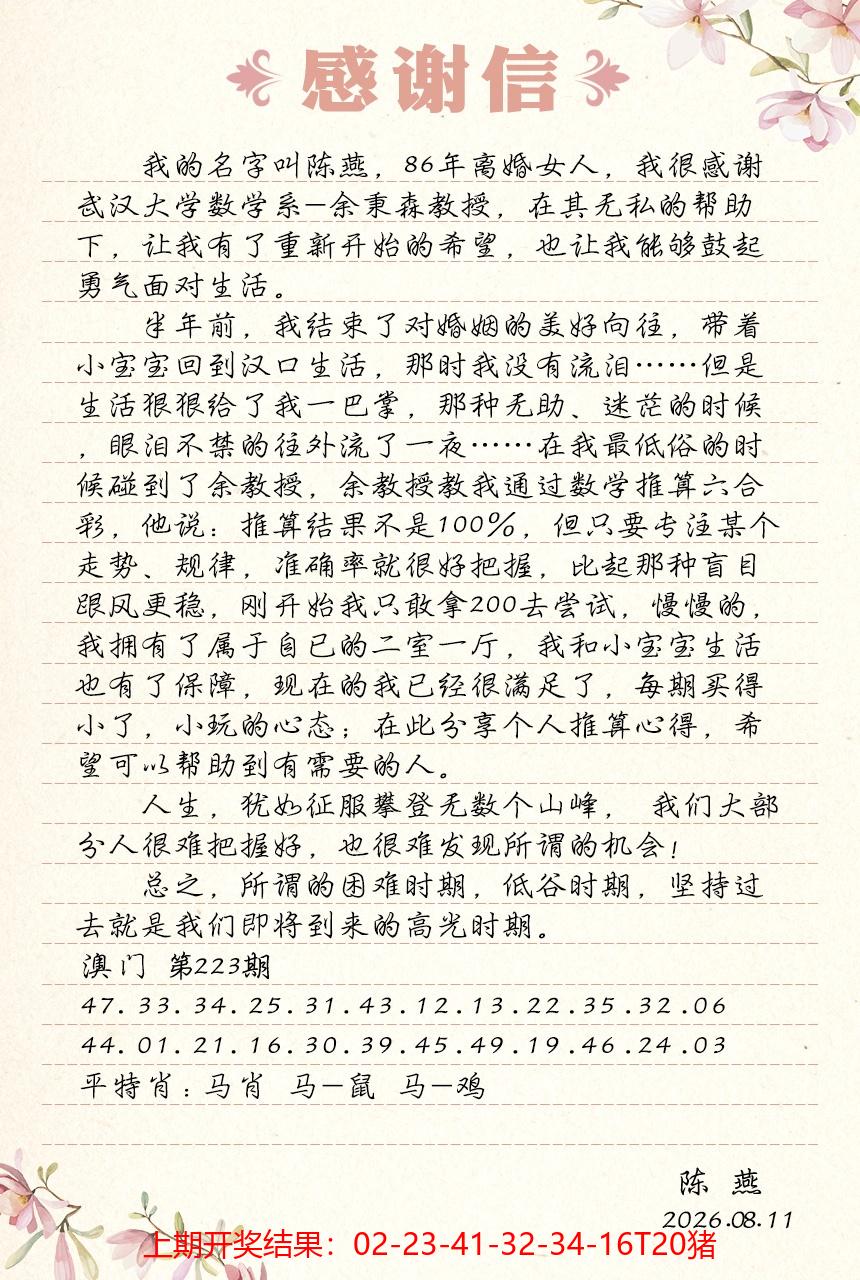 感谢信
我的名字叫陈燕，86年离婚女人，我很感谢
武汉大学数学系—余秉森教授，在其无私的帮助
下，让我有了重新开始的希望，也让我能够鼓起
勇气面对生活。
半年前，我结束了对婚姻的美好向往，带着
小宝宝回到汉口生活，那时我没有流泪……但是
生活狠狠给了我一巴掌，那种无助、迷茫的时候
，眼泪不禁的往外流了一夜……在我最低俗的时
候碰到了余教授，余教授教我通过数学推算六合
彩，他说：推算结果不是100%，但只要专注某个
走势、规律，准确率就很好把握，比起那种盲目
跟风更稳，刚开始我只敢拿200去尝试，慢慢的，
我拥有了属于自已的二室一厅，我和小宝宝生活
也有了保障，现在的我已经很满足了，每期买得
小了，小玩的心态；在此分享个人推算心得，希
望可以帮助到有需要的人。
人生，犹如征服攀登无数个山峰， 我们大部
分人很难把握好，也很难发现所谓的机会！
总之，所谓的困难时期，低谷时期，坚持过
去就是我们即将到来的高光时期。
澳门 第223期
47.33.34.25.31.43.12.13.22.35.32.06
44.01.21.16.30.39.45.49.19.46.24.03
平特肖：马肖 马—鼠 马—鸡
陈 燕
2026.08.11
上期开奖结果：02-23-41-32-34-16T20猪